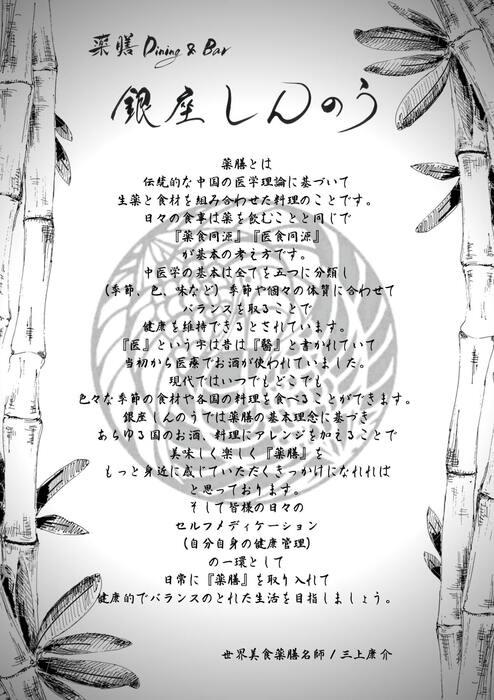 薬膳 Dining & Bar
銀座しんのう
薬膳とは
伝統的な中国の医学理論に基づいて
生薬と食材を組み合わせた料理のことです。
日々の食事は薬を飲むことと同じで
『薬食同源』『医食同源』
が基本の考え方です。
中医学の基本は全てを五つに分類し
(季節、色、味など) 季節や個々の体質に合わせて
バランスを取ることで
健康を維持できるとされています。
『医』という字は昔は『醫』と書かれていて
当初から医療でお酒が使われていました。
現代ではいつでもどこでも
色々な季節の食材や各国の料理を食べることができます。
銀座しんのうでは薬膳の基本理念に基づき
あらゆる国のお酒、料理にアレンジを加えることで
美味しく楽しく『薬膳』を
もっと身近に感じていただくきっかけになれれば
と思っております。
そして皆様の日々の
セルフメディケーション
(自分自身の健康管理)
の一環として
日常に『薬膳』を取り入れて
健康的でバランスのとれた生活を目指しましょう。
世界美食薬膳名師 / 三上康介